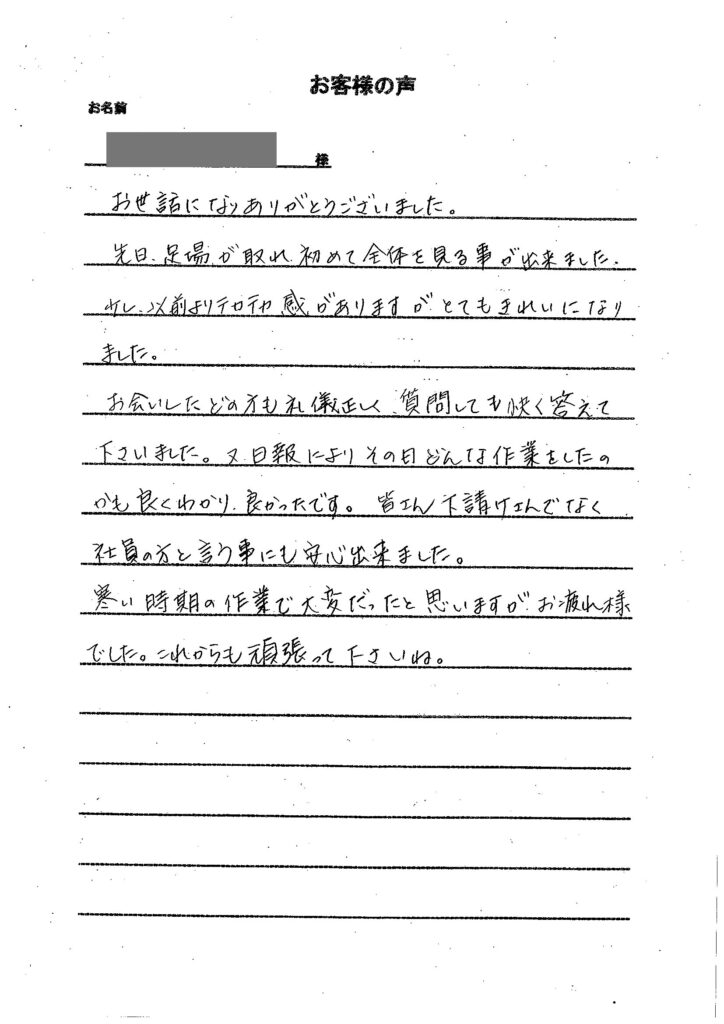 お客様の声
お名前
様
お世話になりありがとうございました。
先日、足場が取れ、初めて全体を見る事が出来ました。
少し、以前よりテカテカ感がありますが、とてもきれいになり
ました。
お会いしたどの方も礼儀正しく、質問しても快く答えて
下さいました。又、日報によりその日どんな作業をしたの
かも良くわかり、良かったです。皆さん下請けさんでなく
社員の方と言う事にも安心出来ました。
寒い時期の作業で大変だったと思いますが、お疲れ様
でした。これからも頑張って下さいね。